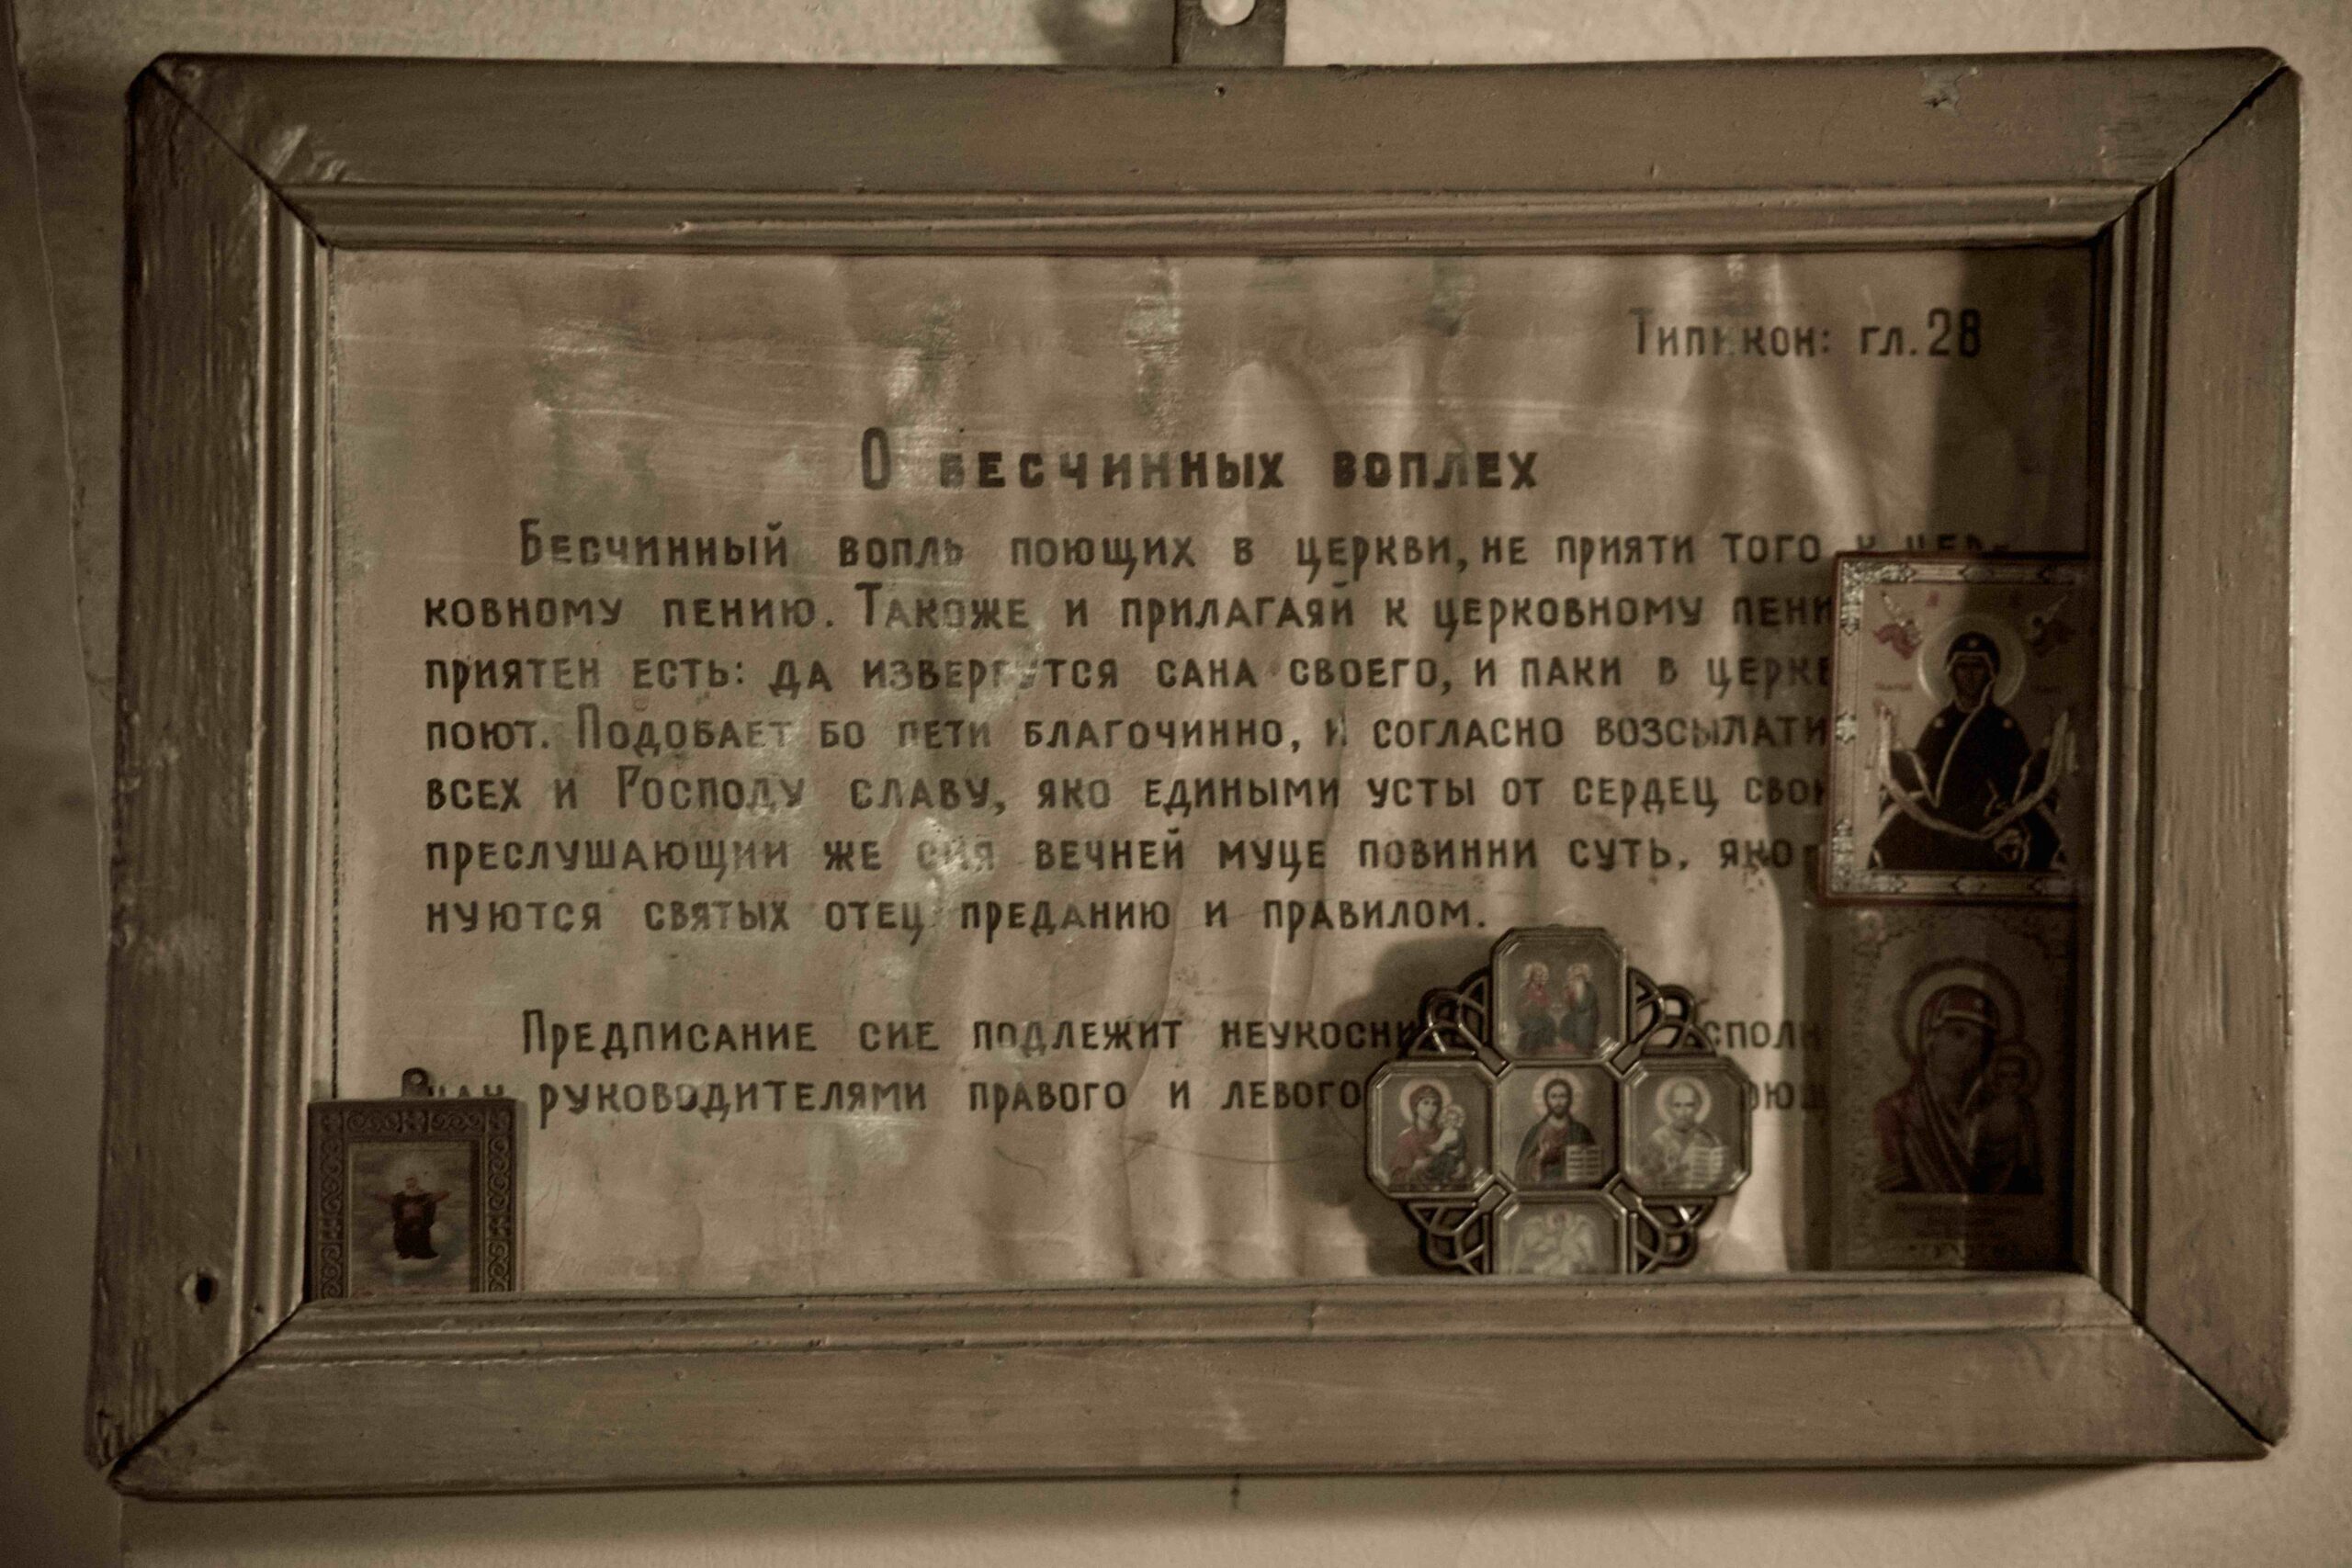 Типикон: гл. 28
О бесчинных воплех
Бесчинный вопль поющих в церкви, не прияти того к цер-
ковному пению. Такоже и прилагаяй к церковному
приятен есть: да извергутся сана своего, и паки в
поют. Подобает бо пети благочинно, и согласно возсылати
всех и Господу славу, яко едиными усты от сердец
преслушающии же сия вечней муце повинни суть, яко
нуются святых отец преданию и правилом.
Предписание сие подлежит
руководителями правого и левого